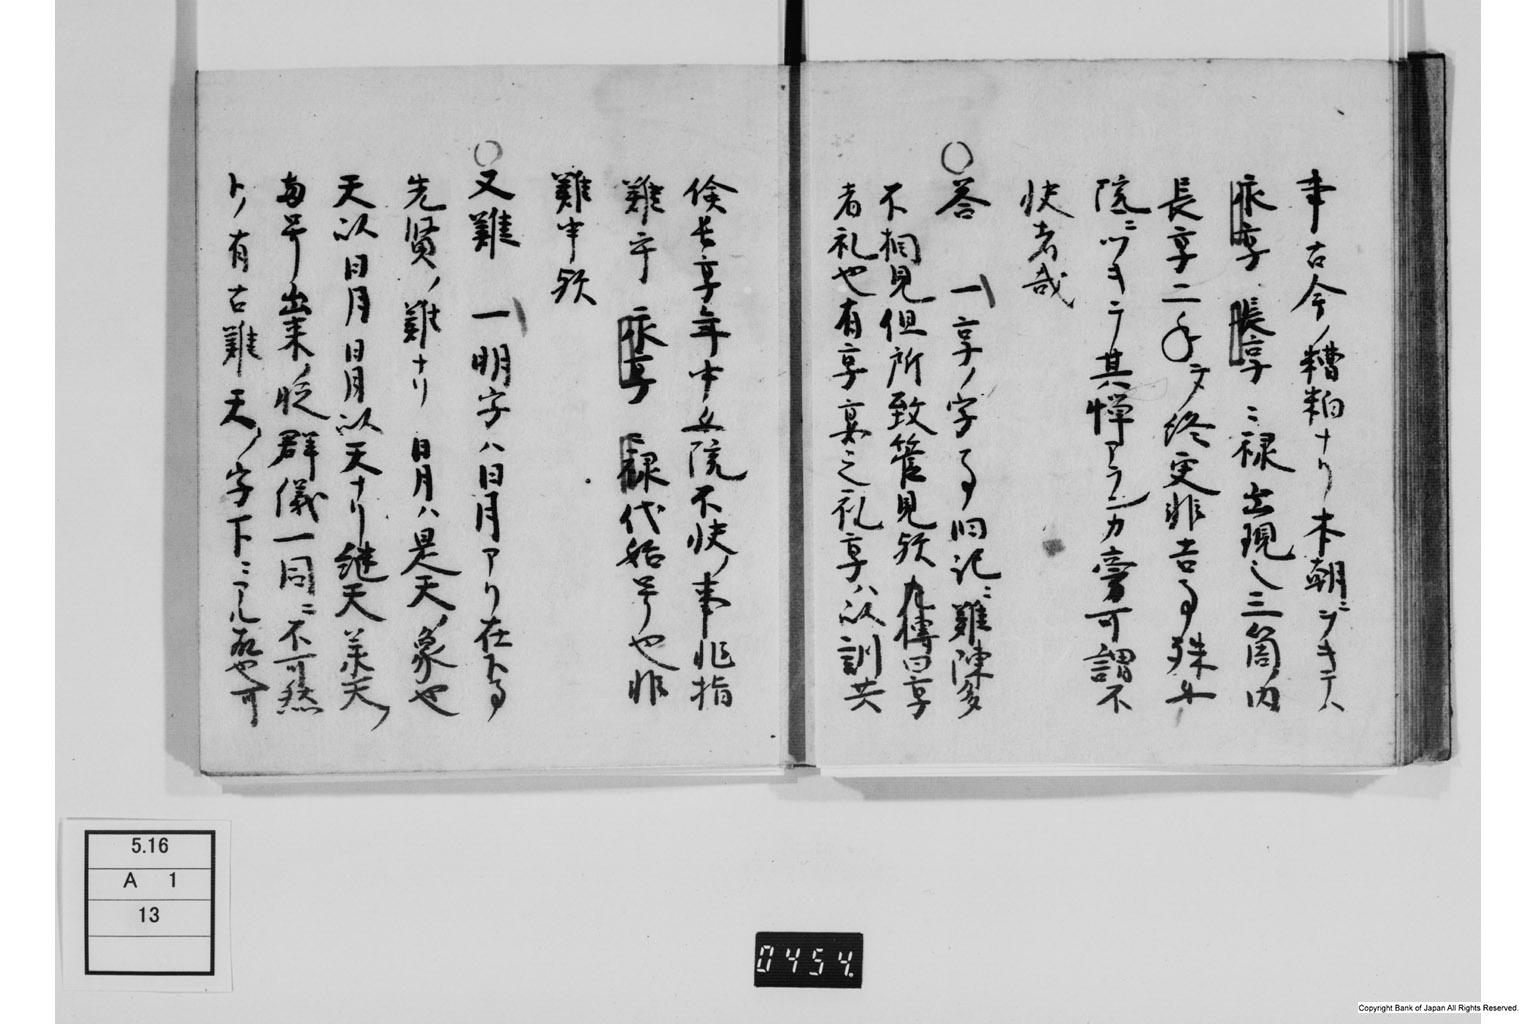 事古今ノ糟粕ナリ本朝ニヲキテハ
永享 長享ニ禄出現之三箇ノ内
長享二年ヲ終更非吉事殊女
院ニツキテ其憚アランカ旁可謂不
快者哉
〇答 一享ノ字事旧記ニ難陳多
不相見但所致管見歟 左傳曰享
者礼也有享宴之礼享ハ以訓共
倹長享年中女院不快ノ事非指
難乎 永享 禄代始号也非
難中歟
〇又難 一明字ハ日月アリ在下事
先賢ノ難ナリ 日月ハ是天ノ象也
天以日月日月以天ナリ継天 天
毎号出来ノ 群儀一同ニ不可然
トノ有古難天ノ字下ニアル故也可
5.16
A 1
13
0454.
Copyright Bank of Japan All Rights Reserved.